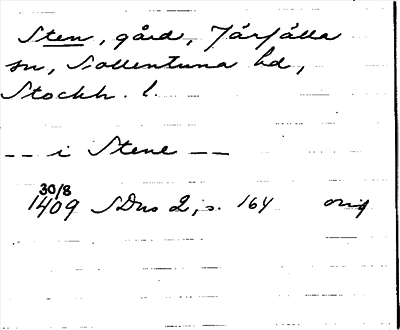 Sten, gård, Järfälla
sn, Sollentuna hd,
Stockh. l.
-- i Stene --
30/8
1409 SDns 2, s. 164 orig